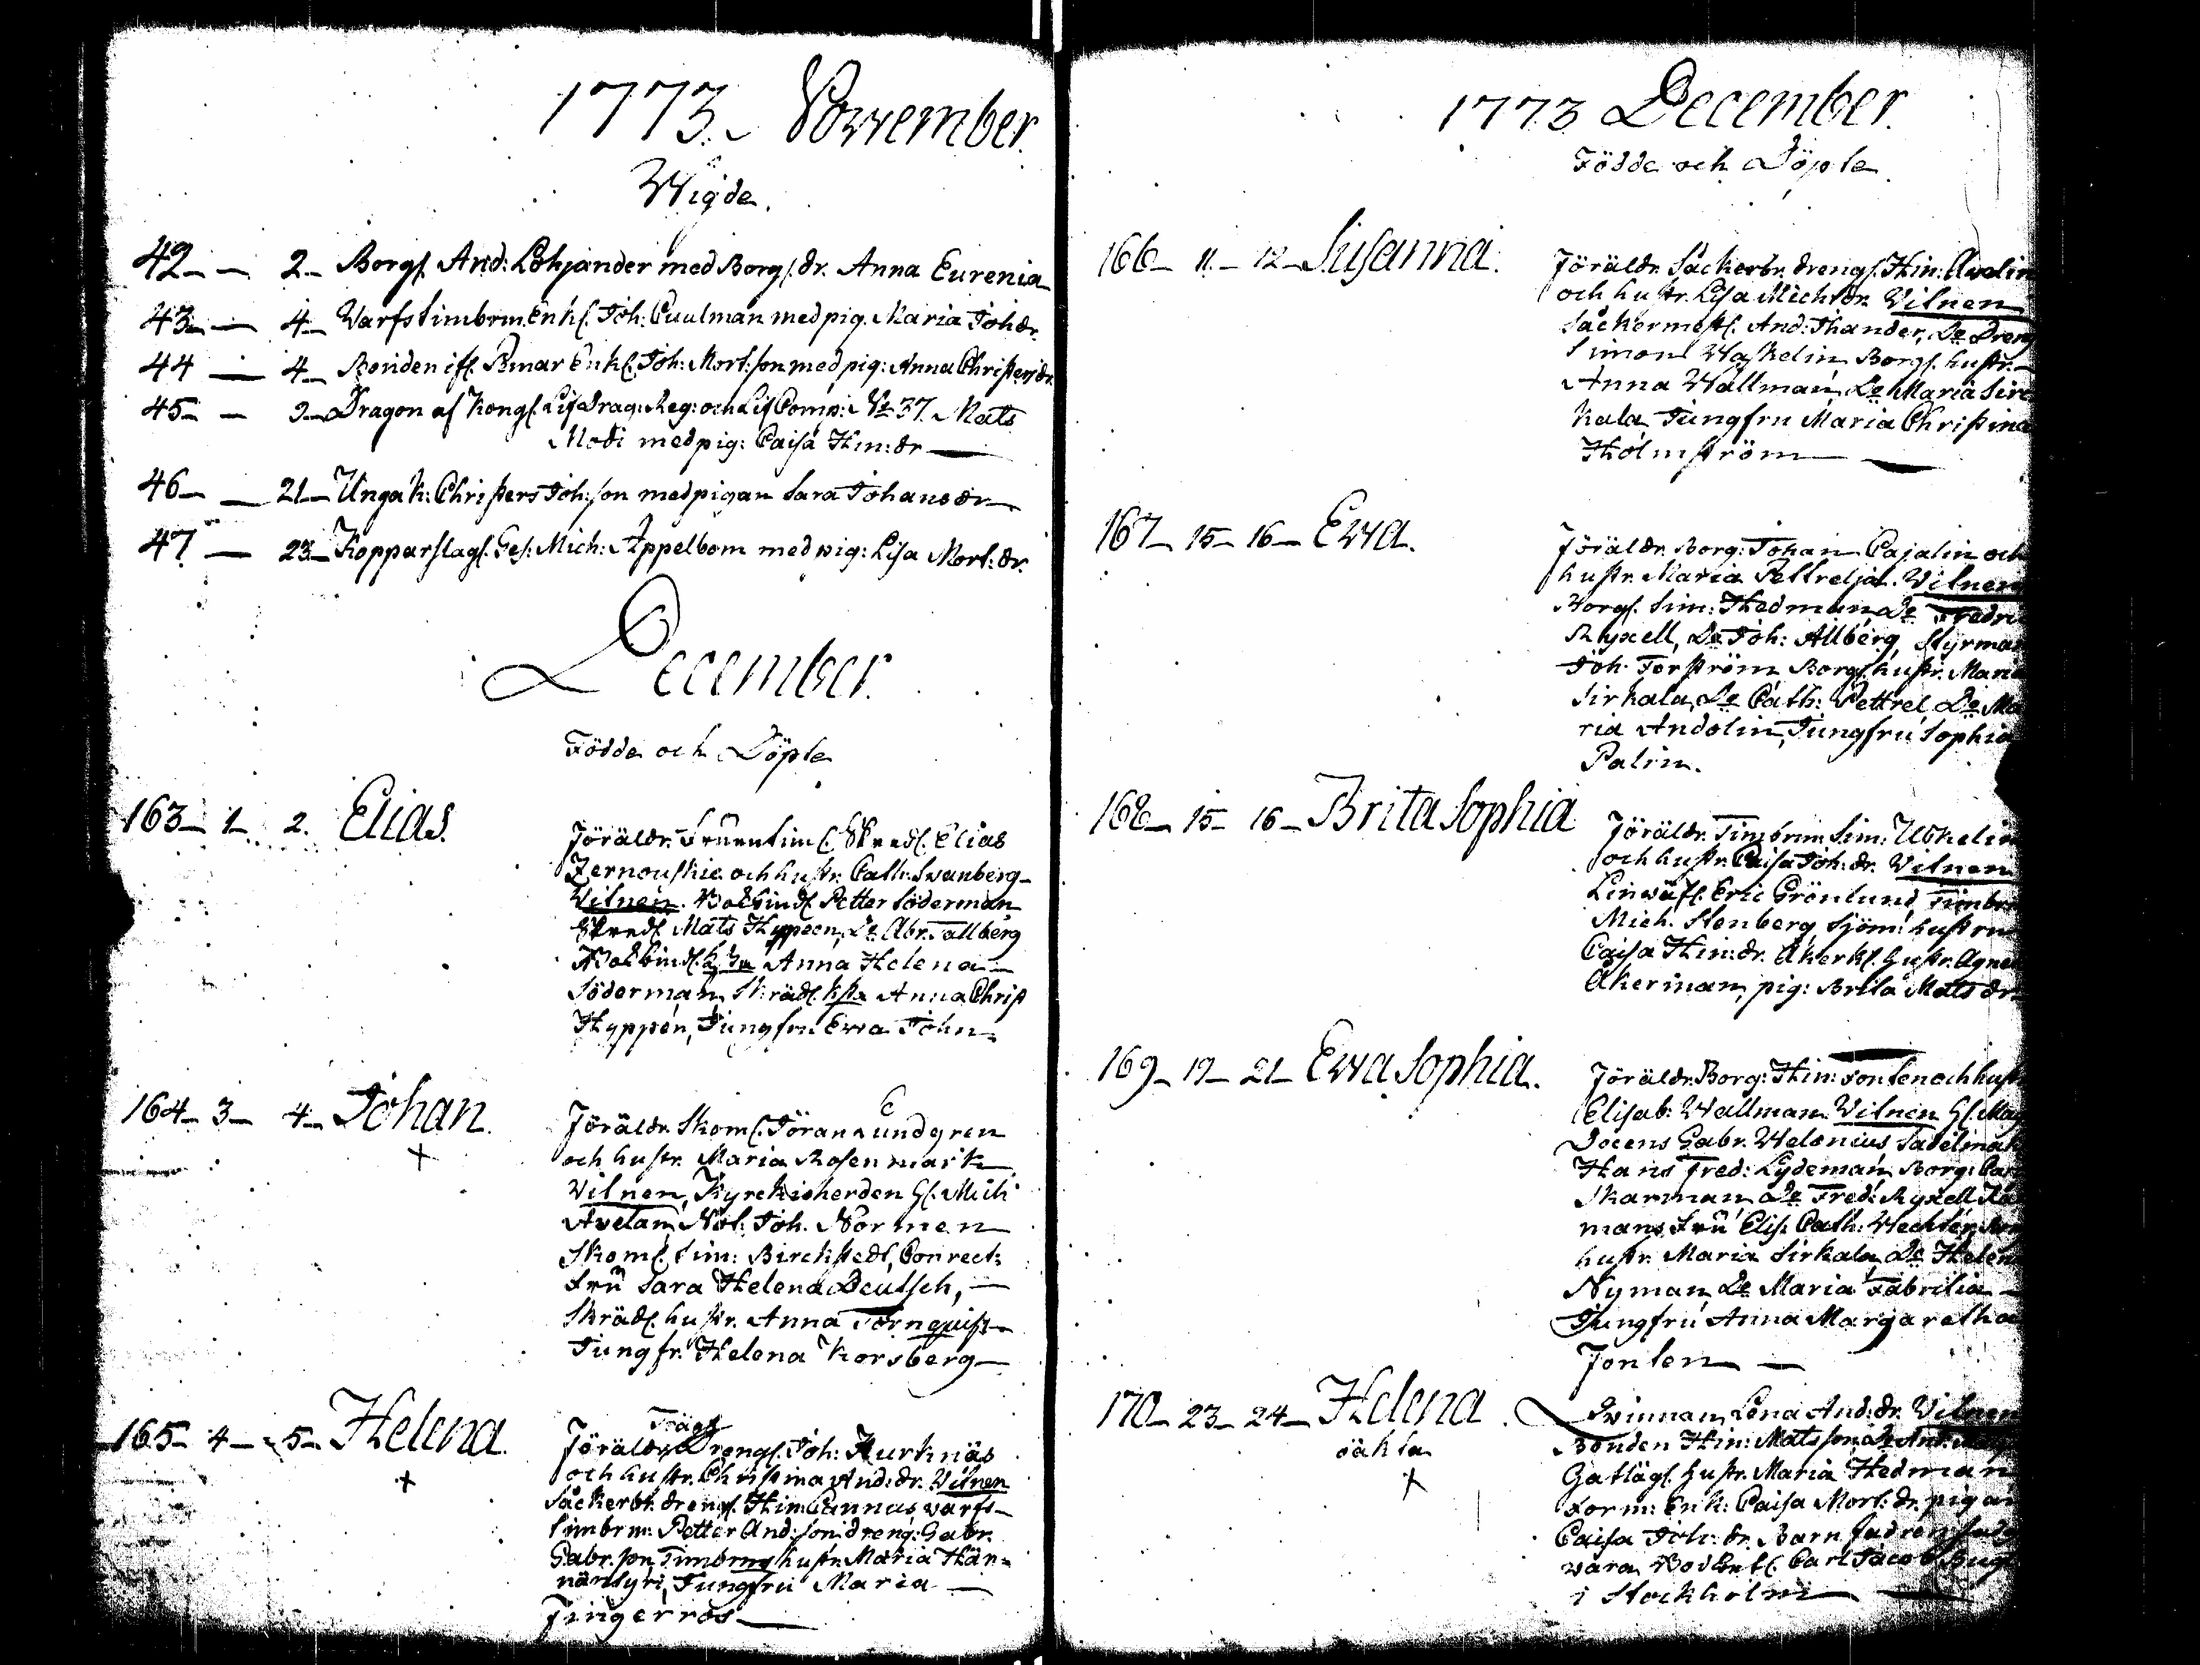 1773. November.
Wigde.
42 — 2 — Borgs. And: Lohjander med Borgs. dr. Anna Eurenia
43 — 4 — Warfstimbrm. Enkl. Joh: Cuulman med pig. Maria Johdr.
44 — 4 — Bonden ifr. Enkl. Joh: Mort:son med pig: Anna Christersdr.
45 — 9 — Dragon af Kongl. Lif Drag: Reg: och Lif Comp: No 37. Mats
Modi med pig: Caisa Hin: dr —
46 — 21 — Unga k: Christers Joh:son med pigan Sara Johansdr
47 — 23 — Kopparslag. Ges: Mich: Appelbom med pig: Lisa Mort: dr.
December.
Födde och Döpte
163 — 1 — 2. Elias.
Föräldr. Elias
Zernouskie och hustr. Cath: Swanberg —
Vitnen. Bokbind. Petter Söderman
Mats Hyppeen, Do Abr. Tallberg
Bokbind. Anna Helena —
Söderman, Skräd. hstr Anna Christ
Hyppén, Jungfru Ewa John —
164 — 3 — 4 — Johan.
+
Föräldr. Skom. Jöran Lundgren
och hustr. Maria Rosenmark
Vitnen, Kyrckioherden H. Mich
Avelan, Not. Joh. Normen
Skom. Sim: Birckstedt, Conrect:
Fru Sara Helena Deutsch, —
Skräd. hustr. Anna Törnquist —
Jungfr. Helena Korsberg —
165 — 4 — 5 — Helena.
+
Föräldr. Drengs. Joh: Kurknäs
och hustr. Christina And: dr. Vitnen
Såckerbr. dreng. Hin: Cannus warfs —
timbrm: Petter And:son dreng: Gabr.
Gabr.son, Timbrms hustr. Maria Hän=
näntytri, Jungfru Maria —
Fingerroos —
1773 December.
Födde och Döpte.
166 — 11 — 12 — Susanna.
Föräldr. Såckerbr. drengs. Hin: Avelin
och hustr. Lisa Mich:dr. Vitnen
Såckermest. And: Thander, Do Dreng
Simon Waskelin Borgs. hustr. —
Anna Wallman, Do Maria Sir
kala, Jungfru Maria Christina
Holmström —
167 — 15 — 16 — Ewa.
Föräldr. Borg: Johan Cajalin och
hustr. Maria Vitnen
Borgs. Sim: Hedman, Do Fredr
Ryxell, Do Joh: Allberg, Styrman
Joh. Forström, Borgs. hustr. Maria
Sirkala, Do Cath: Pettrel, Do Ma
ria Andolin, Jungfru Sophia
Palin.
168 — 15 — 16 — Brita Sophia
Föräldr. Timbrm. Sim: Uskelin
och hustr. Caisa Joh: dr. Vitnen
Linwäf. Eric Grönlund, Timbr
Mich. Stenberg, Sjöm: hustru
Caisa Hin: dr. Åkerk. hustr. Agnes
Åkerman, pig: Brita Mats dr
169 — 19 — 21 — Ewa Sophia.
Föräldr. Borg: Hin: Fonten och hustr
Elisab: Wallman. Vitnen H. Mag
Docens Gabr. Welonius Sadelmak
Hans Fred: Lydeman, Borg: Ca
Skarman, Do Fred: Ryxell Rå
mans Fru Elis. Cath: Wechter,
hustr. Maria Sirkala, Do Helen
Nyman, Do Maria Fabrilia —
Jungfru Anna Margaretha
Fonten —
170 — 23 — 24 — Helena.
oäkta
+
Qvinnan Lena And: dr. Vitnen
Bonden Hin: Matsson, Do And:
Gatlägs. hustr. Maria Hedman
Enk: Caisa Mort: dr. pigan
Caisa Joh: dr. Barnfadren
wara Carl Jacob
i Stockholm —